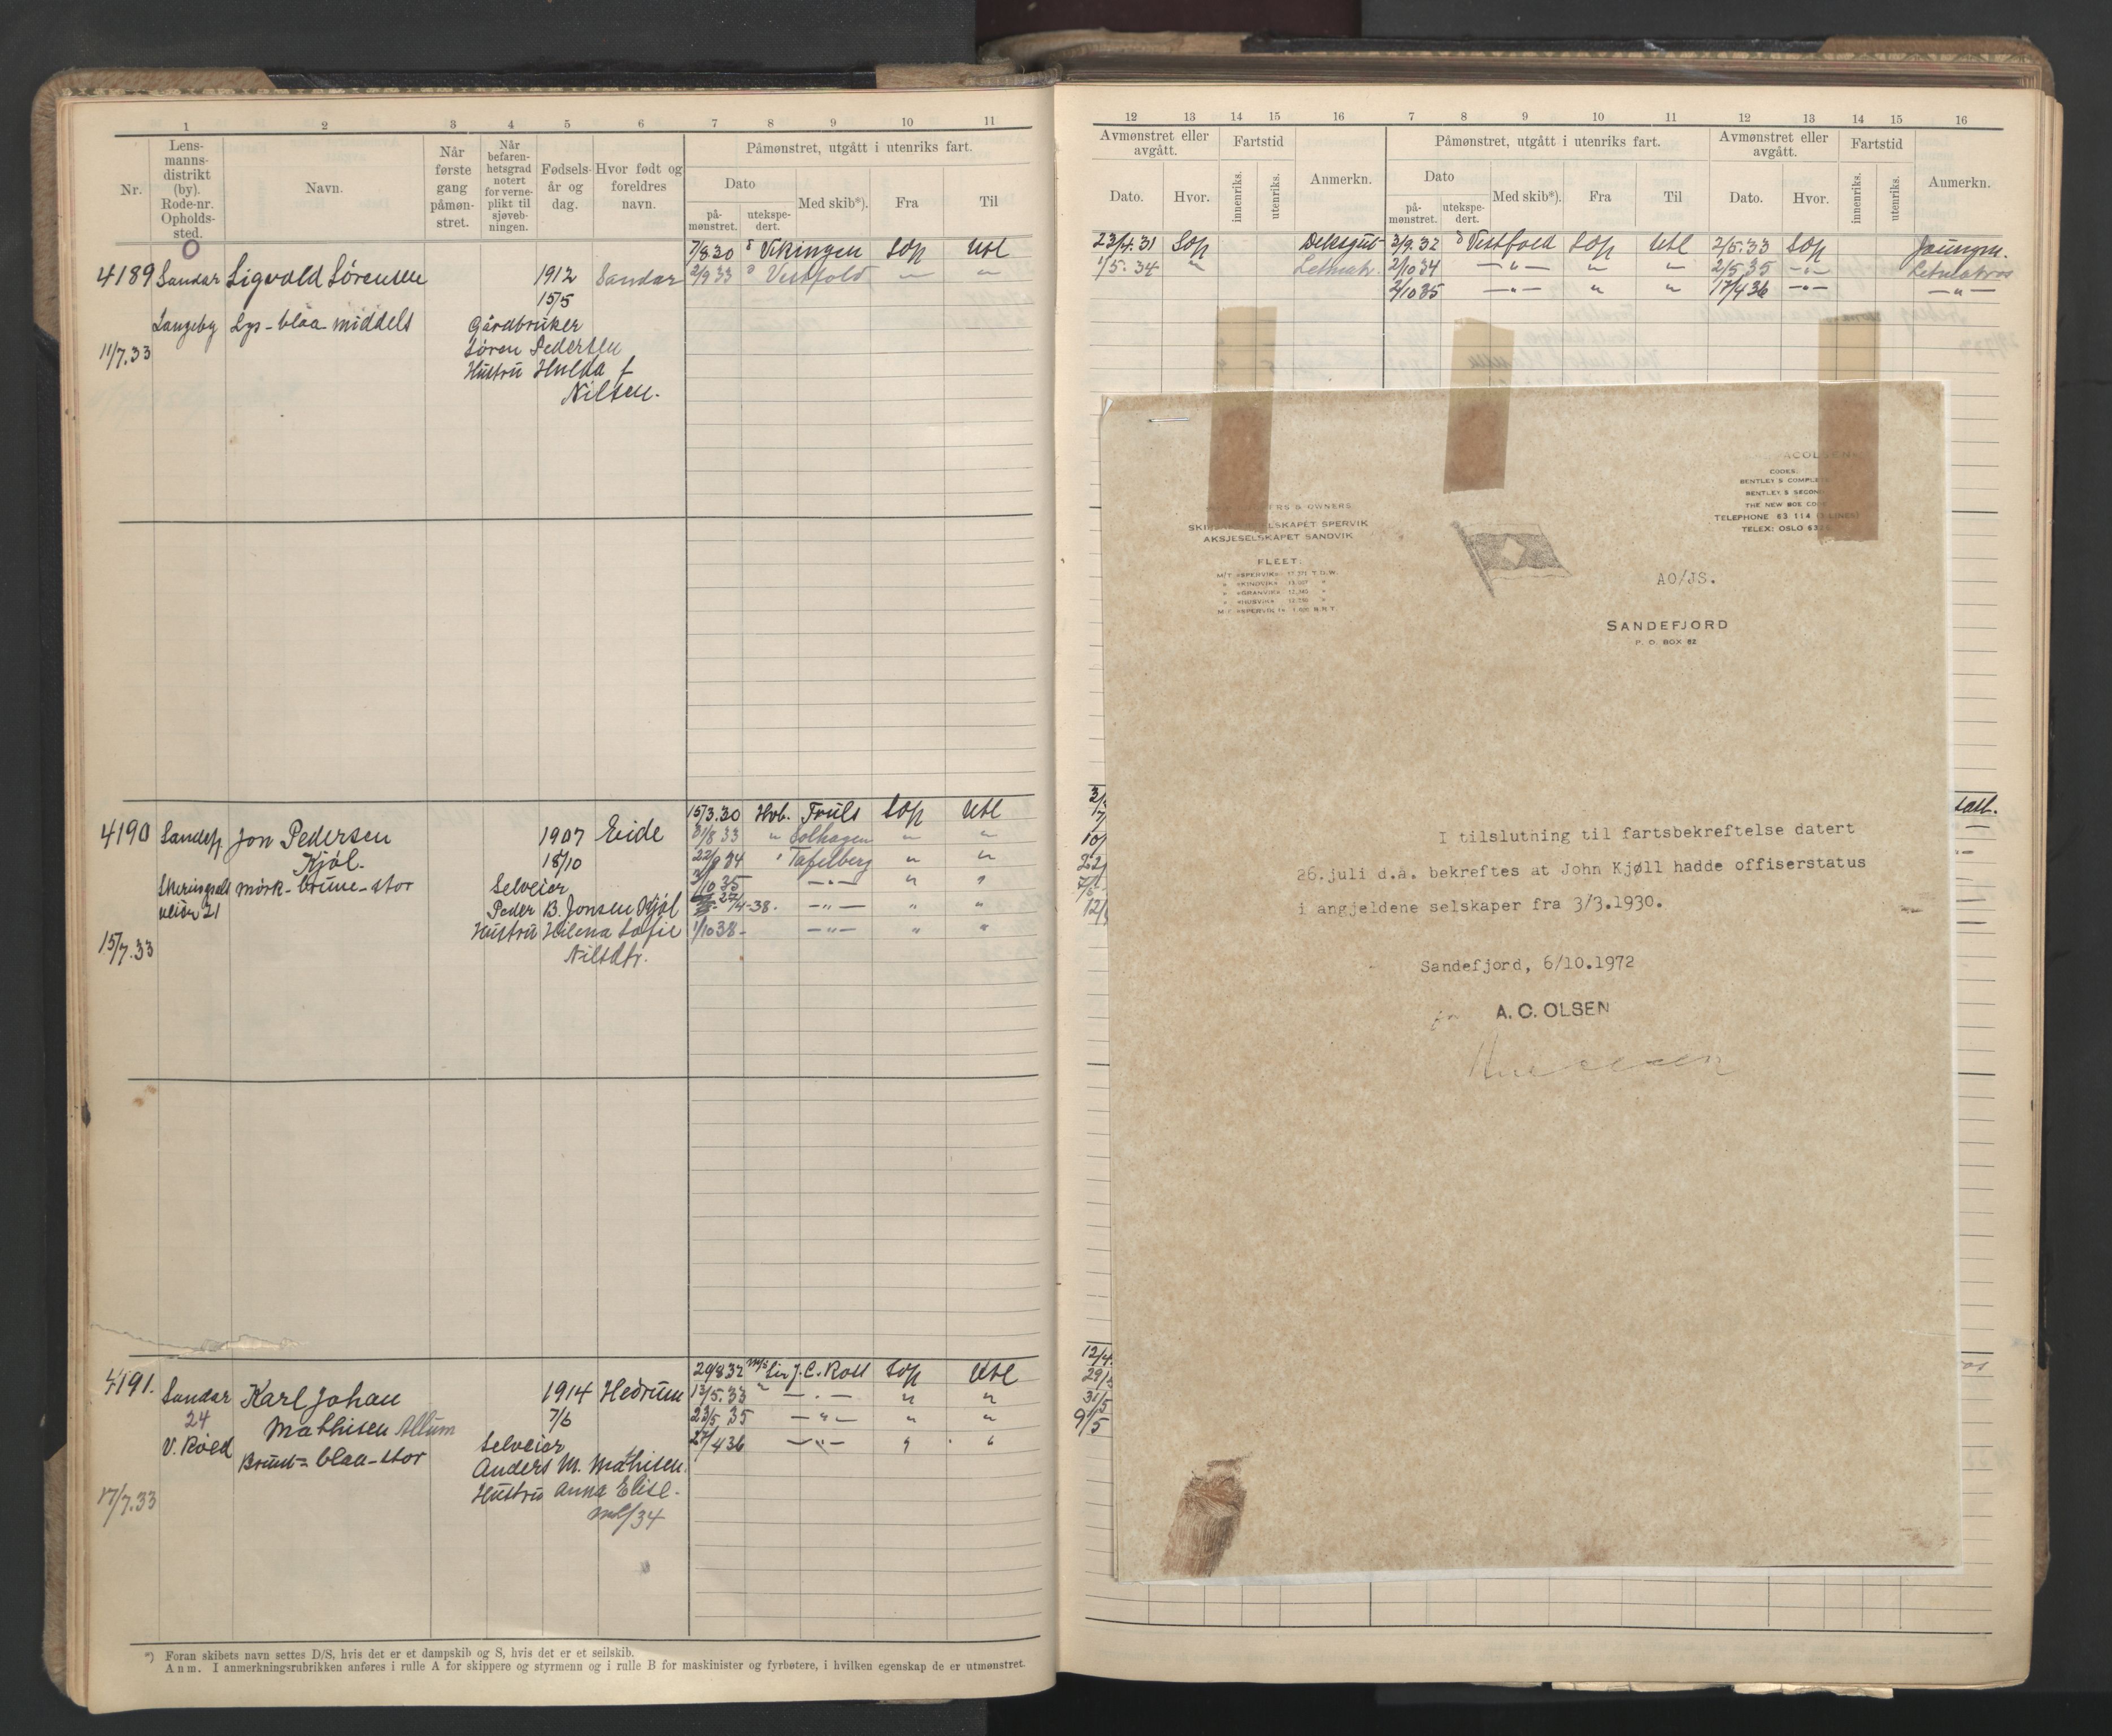 1 2 3 4 5 6 7 8 9 10 11
Nr.
Lens-
manns-
distrikt
(by).
Rode-nr.
Opholds-
sted.
Navn.
Når
første
gang
påmøn-
stret.
Når
befaren-
hetsgrad
notert
for verne-
plikt til
sjøveb-
ningen.
Fødsels-
år og
dag.
Hvor født og
foreldres
navn.
Påmønstret, utgått i utenriks fart.
Dato
på-
mønstret.
utekspe-
dert.
Med skib*).
Fra
Til
4189 Sandar Sigvald Sørensen 1912 Sandar
15/5
Langeby Lys-blåa middels Gårdbruker
11/7.33 Søren Pedersen
Hustru Hulda f
Nilsen.
7/8 30 Vikingen SOp Utl
2/9 33 Vestfold — —
4190 Sandefj Jon Pedersen 1907 Eide
Kjøl. 18/10
mørk-brune-stor Selveier
veien 21 Peder B. Jonsen Kjøl
15/7.33 Hustru Helena Sofie
Nilsdtr.
15/3.30 Hvb. Truls SOp Utl
31/8 33 " Solhagen " "
22/9 34 " Tafelberg " "
3/10 35 — " — " "
27/4-38. — " — " "
1/10 38 - — " — " "
4191. Sandar Karl Johan 1914 Hedrum
24 Mathisen Allum 7/6
V. Røed Brunt-blaa-stor Selveier
Anders M. Mathisen.
17/7.33 Hustru Anna Elise.
ml/34
29/8 32 M/S Sir J.C. Ross SOp Utl
13/5.33 " — " — " "
23/5 35 — " — " "
27/4 36 — " — " "
*) Foran skibets navn settes D/S, hvis det er et dampskib og S, hvis det er et seilskib.
Anm. I anmerkningsrubrikken anføres i rulle A for skippere og styrmenn og i rulle B for maskinister og fyrbøtere, i hvilken egenskap de er utmønstret.
12 13 14 15 16 7 8 9 10 11 12 13 14 15 16
Avmønstret eller
avgått.
Dato.
Hvor.
Fartstid
innenriks.
utenriks.
Anmerkn.
Påmønstret, utgått i utenriks fart.
Dato
på-
mønstret.
utekspe-
dert.
Med skib*).
Fra
Til
Avmønstret eller
avgått.
Dato.
Hvor.
Fartstid
innenriks.
utenriks.
Anmerkn.
23/4.31 SOp Deksgut 3/9.32 Vestfold SOp Utl 2/5.33 SOp Joungm.
1/5.34 " Letmatr. 2/10 34 — " — " " 2/5 35 — " — Letmatros
2/10 35 — " — " " 17/4 36 — " — — " —
CODES:
BENTLEY'S
BENTLEY'S
THE NEW BOE
TELEPHONE 63 114
TELEX: OSLO
& OWNERS
SPERVIK
AKSJESELSKAPET SANDVIK
FLEET:
M/T «SPERVIK»
» «KINGVIK»
» «GRANVIK»
» «HUSVIK»
AO/JS.
SANDEFJORD
P. O. BOX 82
I tilslutning til fartsbekreftelse datert
26.juli d.å. bekreftes at John Kjøll hadde offiserstatus
i angjeldene selskaper fra 3/3.1930.
Sandefjord, 6/10.1972
A. C. OLSEN
10/
22/
7/5
12/
12/4.
29/
31/5
9/5